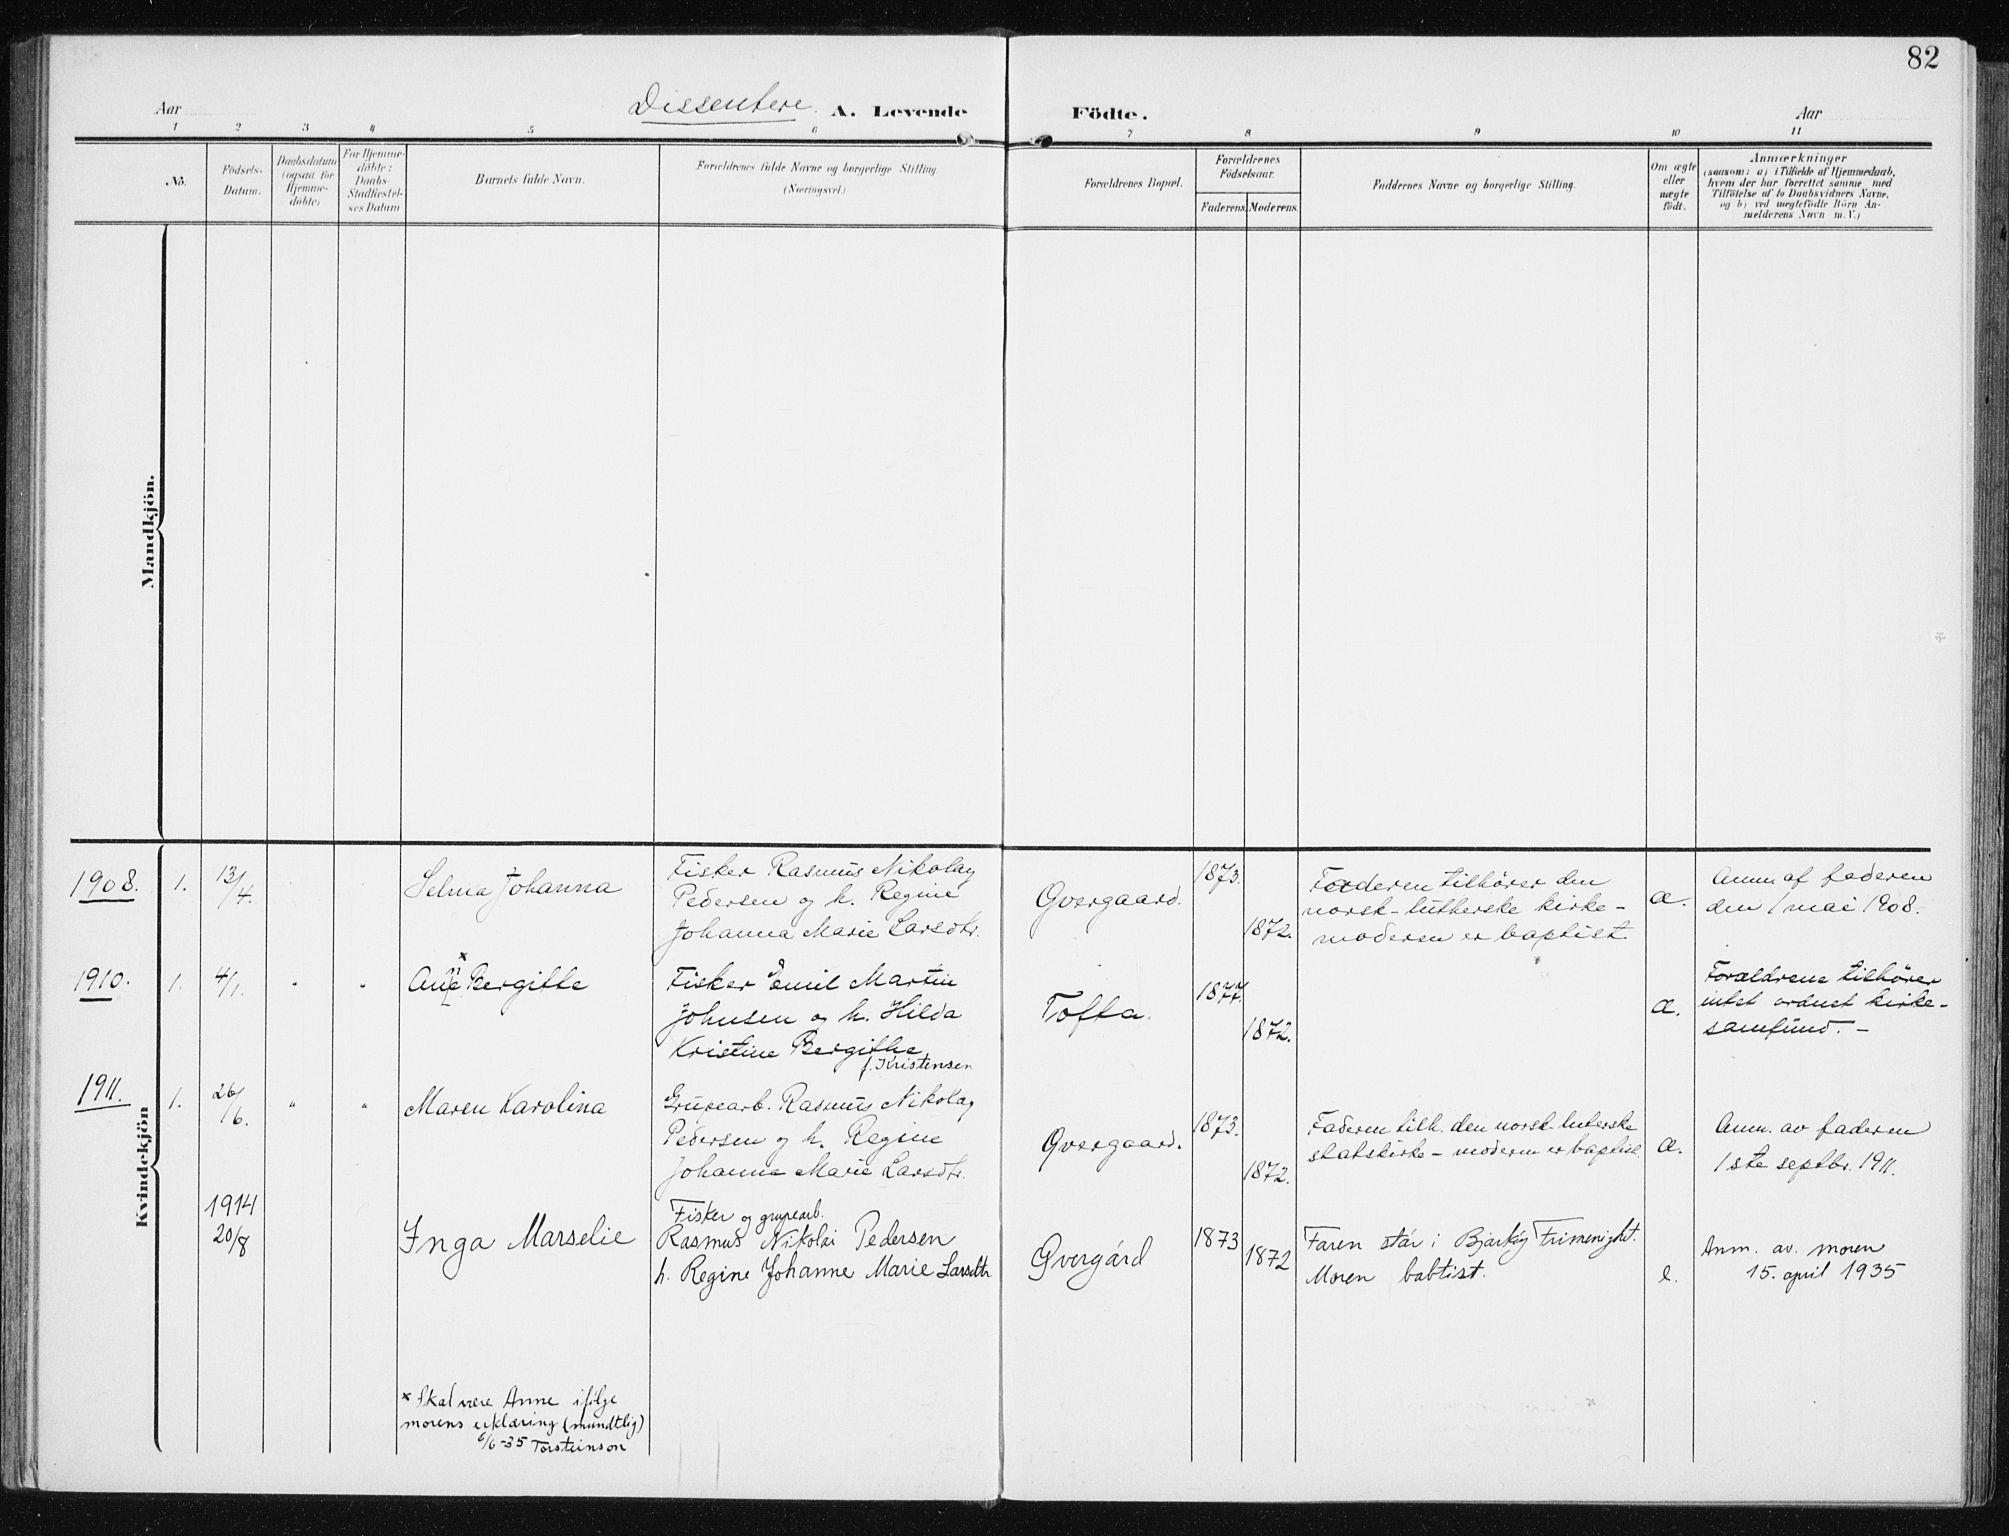 82
Aar
Dissentere. A. Levende
Födte.
Aar
1 2 3 4 5 6 7 8 9 10 11
No.
Födsels-
Datum.
Daabsdatum
(ogsaa for
Hjemme-
döbte)
For Hjemme-
döbte:
Daabs-
Stadfæstel-
ses Datum
Barnets fulde Navn.
Forældrenes fulde Navne og borgerlige Stilling.
(Næringsvei.)
Forældrenes Bopæl.
Forældrenes
Födselsaar.
Faderens. Moderens.
Faddernes Navne og borgerlige Stilling.
Om ægte
eller
uægte
födt.
Anmærkninger
(saasom: a) i Tilfælde af Hjemmedaab,
hvem der har forrettet samme med
Tilföielse af to Daabsvidners Navne,
og b) ved uægtefödte Börn An-
melderens Navn m. V.)
Mandkjön.
Kvindekjön
1908. 1. 13/4. Selma Johanna
Fisker Rasmus Nikolay
Pedersen og h. Regine
Johanna Marie Larsdtr.
Qvergaard. 1873. 1872.
Faderen tilhører den
norsk-lutherske kirke -
moderen er baptist.
æ.
Anm. af faderen
den 1 mai 1908.
1910. 1. 4/1. " " Ane × Bergitte
Fisker Emil Martin
Johnsen og h. Hilda
Kristine Bergithe
f. Kristensen
Tofta. 1877. 1872.
æ.
Forældrene tilhører
intet ordnet kirke-
samfund. -
1911. 1. 26/6. " " Maren Karolina
Grubearb. Rasmus Nikolay
Pedersen og h. Regine
Johanna Marie Larsdtr.
Qvergaard. 1873. 1872.
Faderen tilh. den norsk-luterske
statskirke - moderen er baptist.
æ.
Anm. av faderen
1ste septbr. 1911.
1914
20/8 Inga Marselie
Fisker og grupearb.
Rasmus Nikolai Pedersen
h. Regine Johanne Marie Larsdtr
Qvergård 1873 1872
Faren står i Bjarkøy Frimenight.
Moren babtist.
e.
Anm. av. moren
15. april 1935
× Skal være Anne ifølge
morens erklæring (mundtlig)
6/6-35 Torsteinson